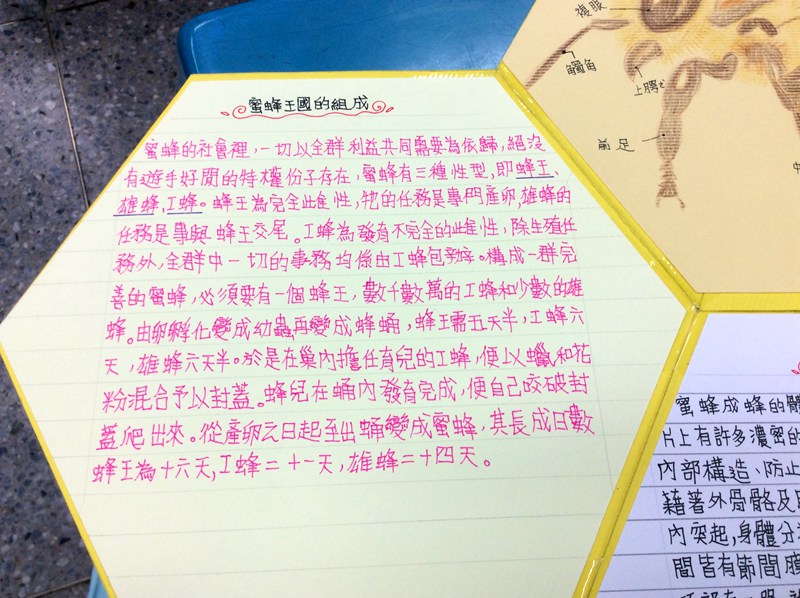 蜜蜂王國的組成
蜜蜂的社會裡，一切以全群利益共同需要為依歸，絕沒
有遊手好閒的特權份子存在，蜜蜂有三種性型，即蜂王、
雄蜂,工蜂。蜂王為完全雌性，牠的任務是專門產卵,雄蜂的
任務是專與蜂王交尾。工蜂為發育不完全的雌性，除生殖任
務外，全群中一切的事務均係由工蜂包辦。構成一群完
善的蜜蜂，必須要有一個蜂王，數千數萬的工蜂和少數的雄
蜂。由卵孵化變成幼蟲再變成蜂蛹，蜂王需五天半，工蜂六
天，雄蜂六天半。於是在巢內擔任育兒的工蜂，便以蠟和花
粉混合予以封蓋。蜂兒在蛹內發育完成，便自己咬破封
蓋爬出來。從產卵之日起至出蛹變成蜜蜂，其長成日數
蜂王為十六天,工蜂二十一天，雄蜂二十四天。
複眼
觸角
上腭
前足
中
蜜蜂成蜂的體
片上有許多濃密的
內部構造、防止
藉著外骨骼及
內突起,身體分
間皆有節間膜